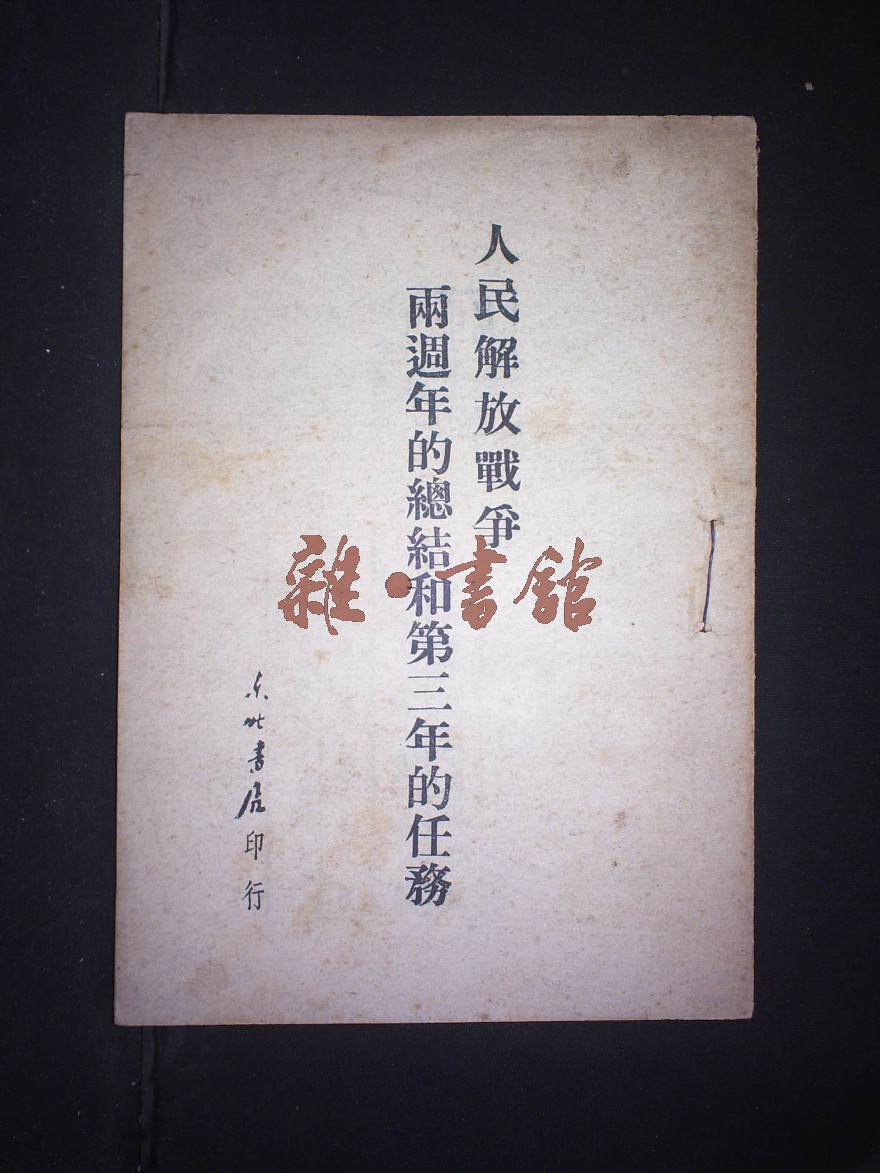 人民解放戰爭
兩週年的總結和第三年的任務
东北書店印行
雜·書館